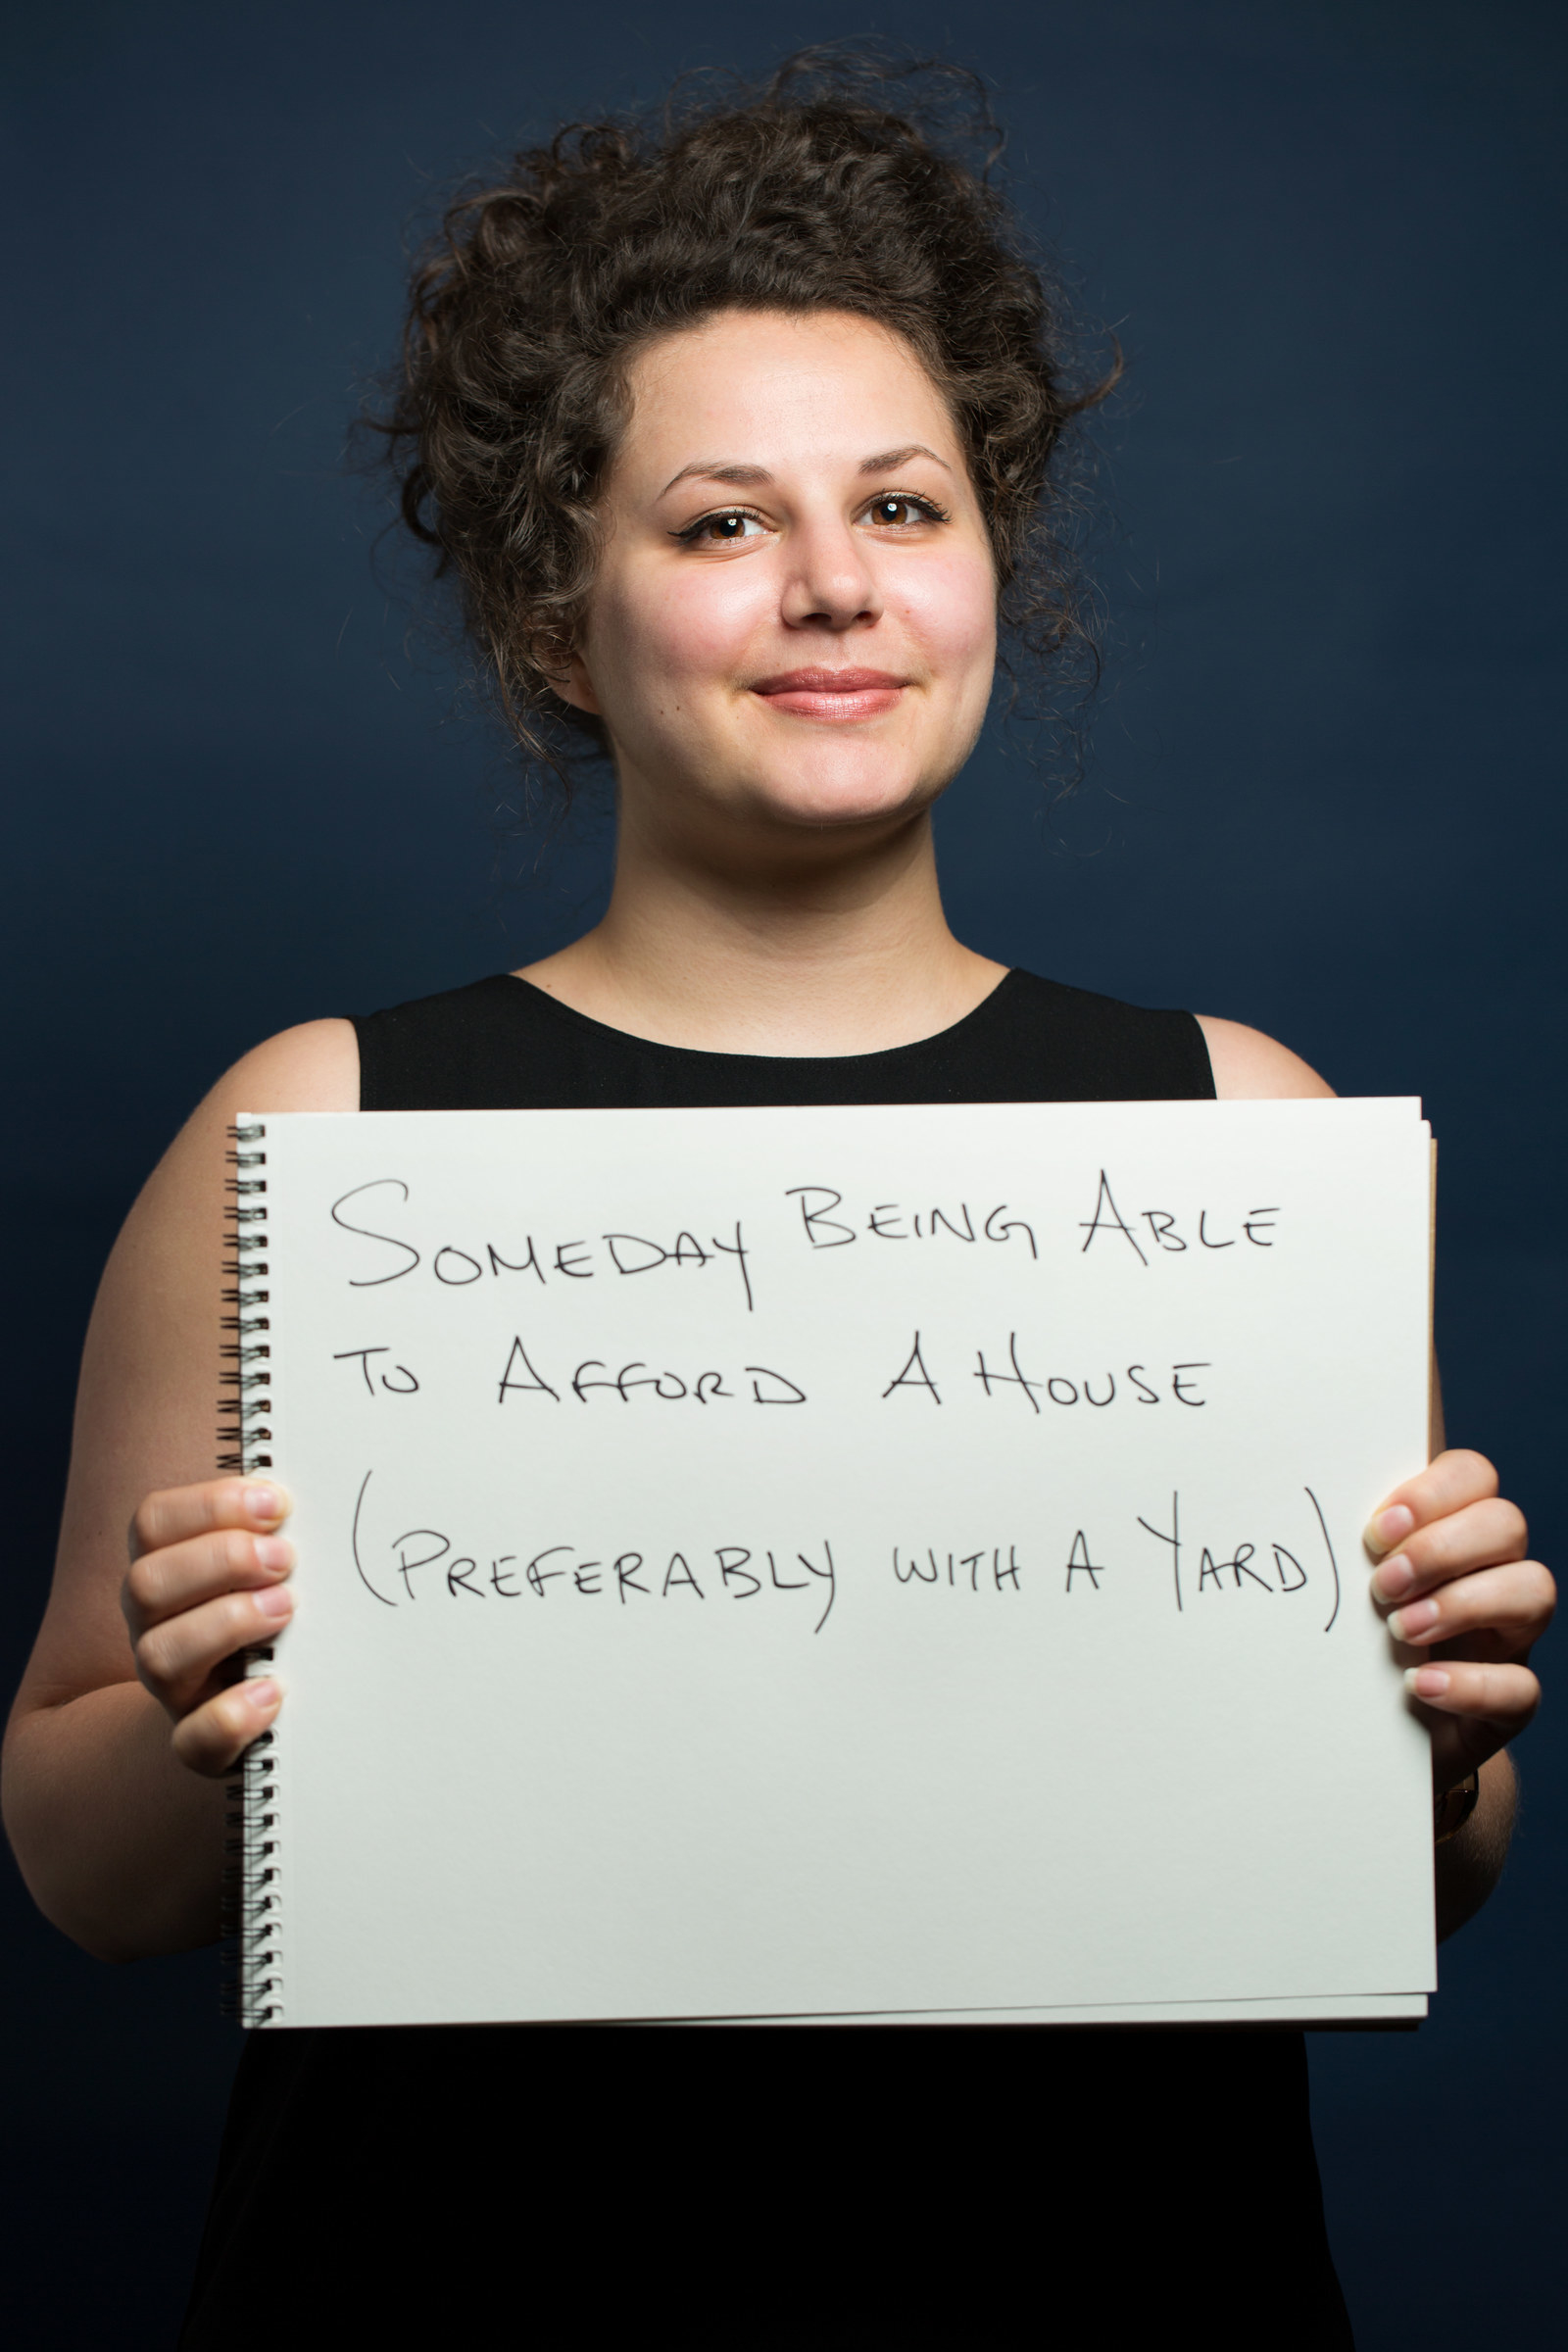 SOMEDAY BEING ABLE
TO AFFORD A HOUSE
(PREFERABLY WITH A YARD)